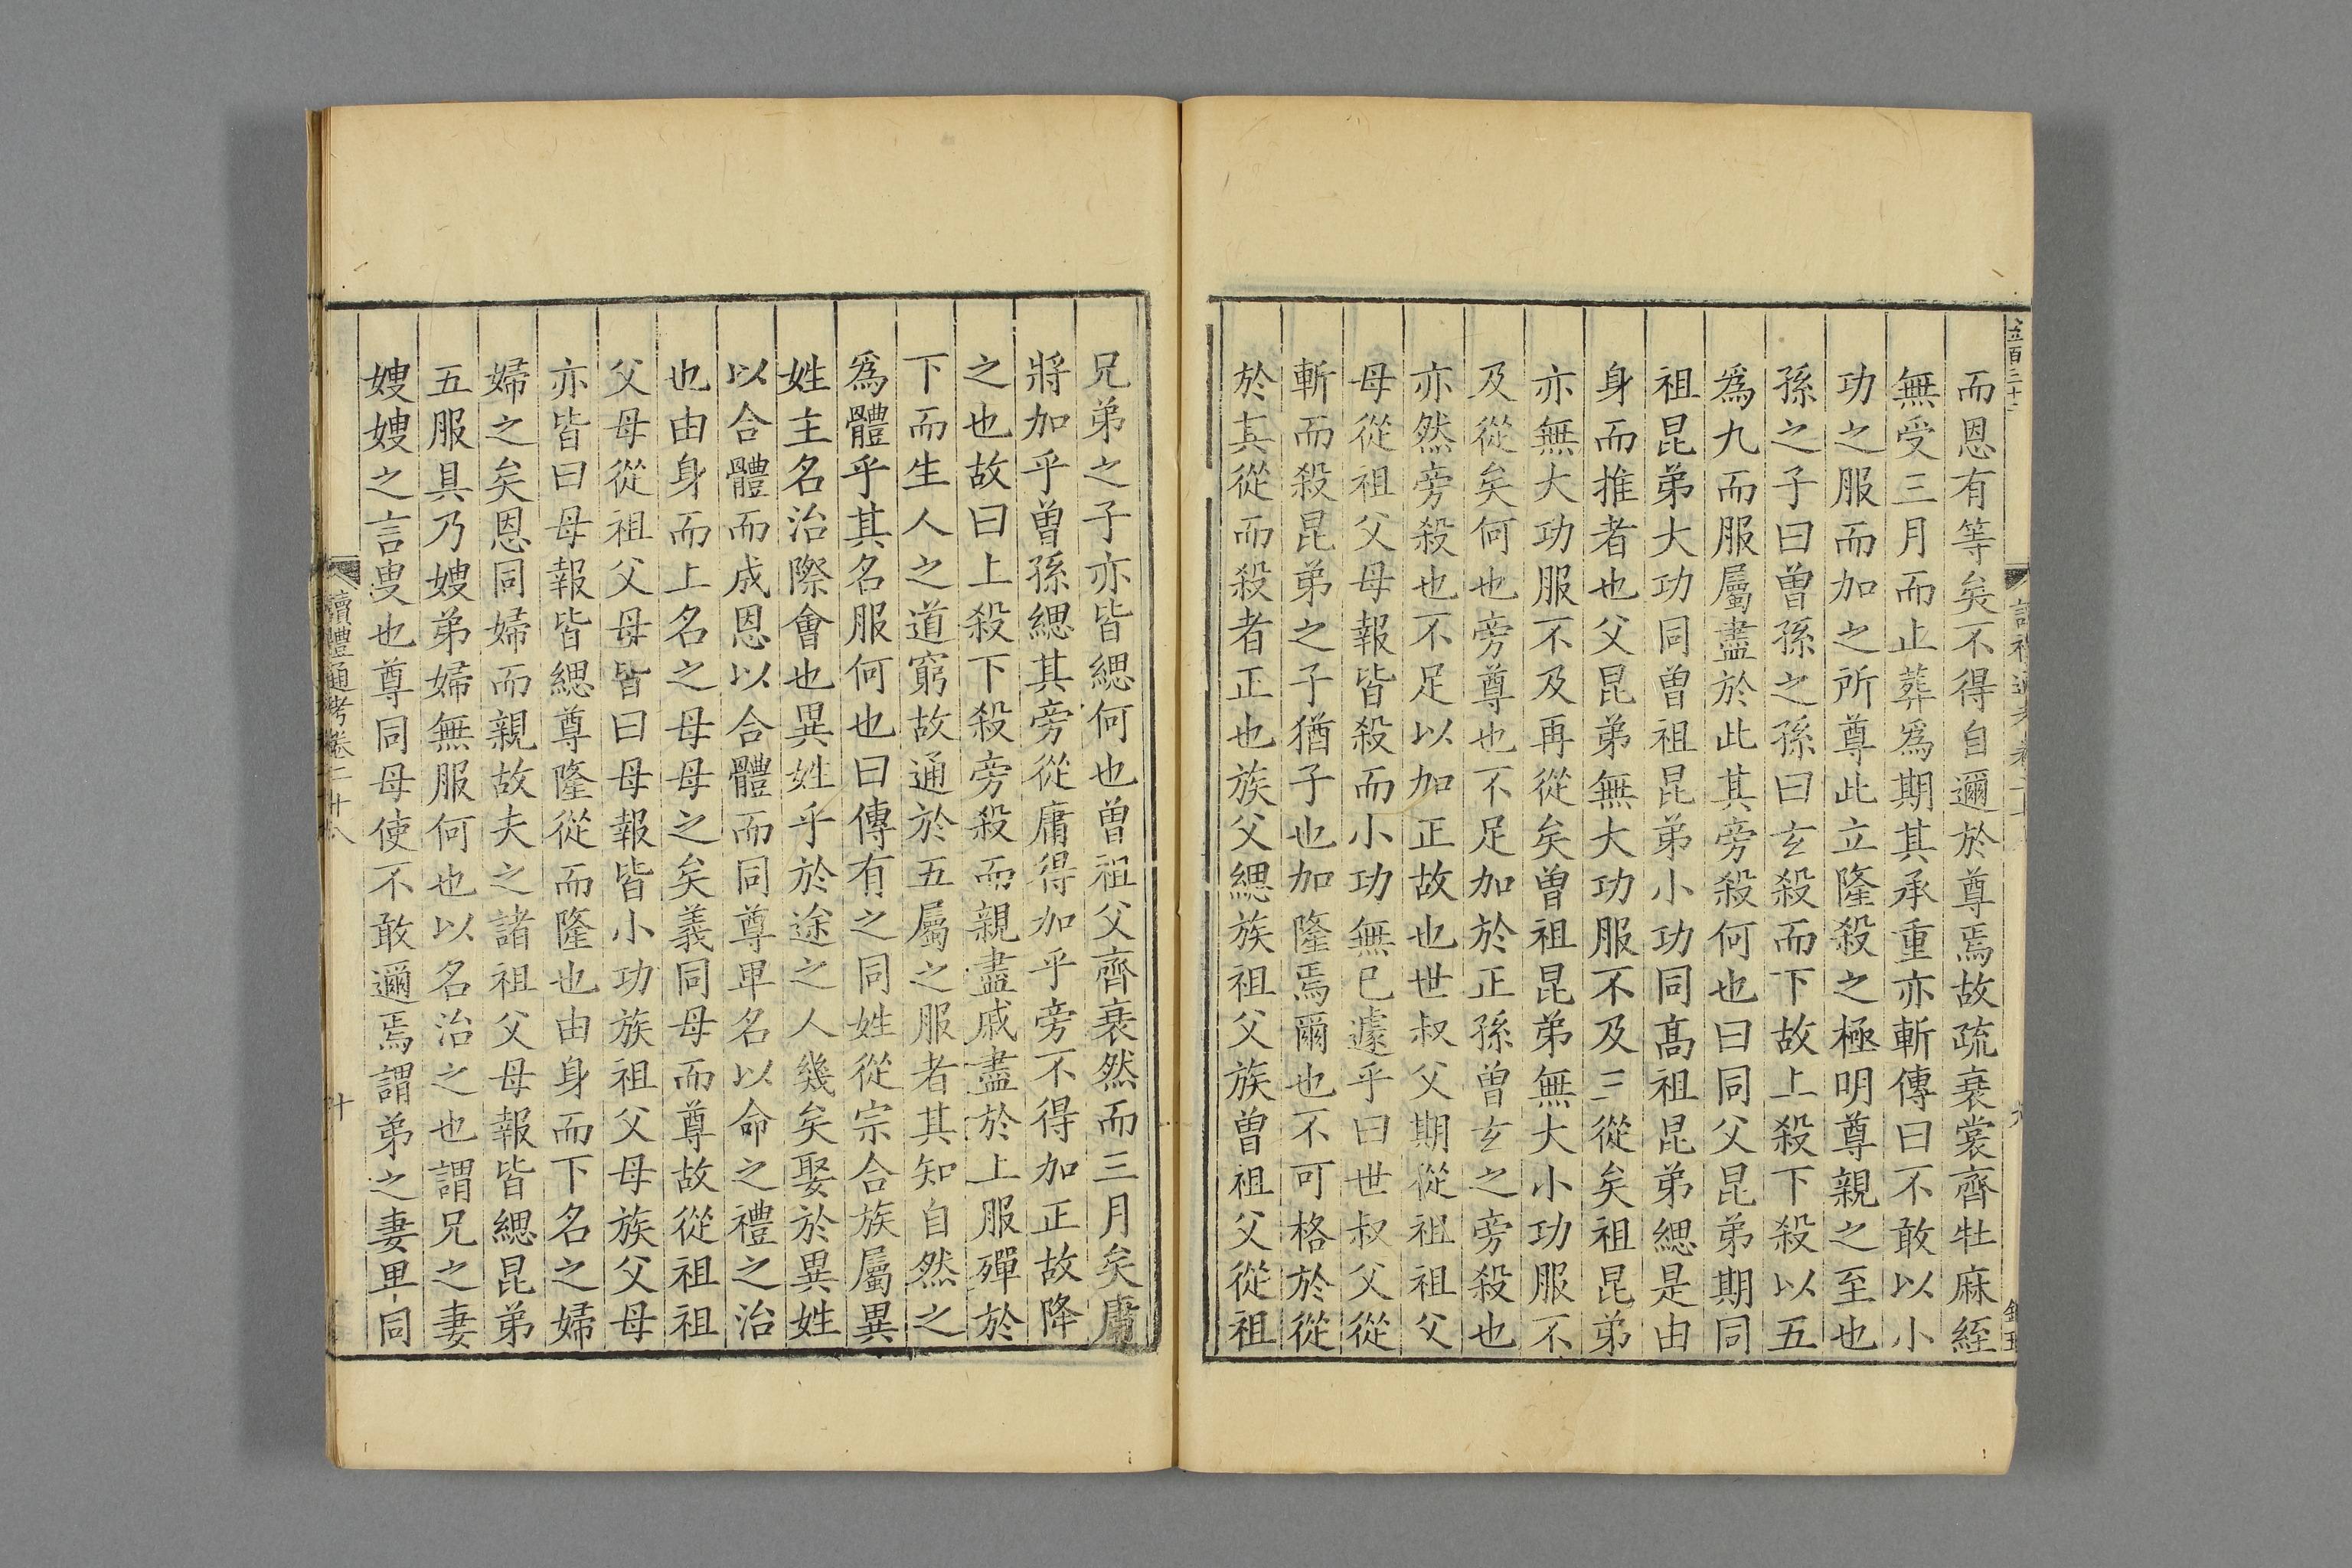 而恩有等矣不得自邇於尊焉故疏衰裳齊牡麻絰
無受三月而止葬爲期其承重亦斬傳曰不敢以小
功之服而加之所尊此立隆殺之極明尊親之至也
孫之子曰曾孫之孫曰玄殺而下故上殺下殺以五
爲九而服屬盡於此其旁殺何也曰同父昆弟期同
祖昆弟大功同曾祖昆弟小功同髙祖昆弟緦是由
身而推者也父昆弟無大功服不及三從矣祖昆弟
亦無大功服不及再從矣曾祖昆弟無大小功服不
及從矣何也旁尊也不足加於正孫曾玄之旁殺也
亦然旁殺也不足以加正故也世叔父期從祖祖父
母從祖父母報皆殺而小功無已遽乎曰世叔父從
斬而殺昆弟之子猶子也加隆焉爾也不可格於從
於其從而殺者正也族父緦族祖父族曾祖父從祖
兄弟之子亦皆緦何也曾祖父齊衰然而三月矣庸
將加乎曾孫緦其旁從庸得加乎旁不得加正故降
之也故曰上殺下殺旁殺而親盡戚盡於上服殫於
下而生人之道窮故通於五屬之服者其知自然之
爲體乎其名服何也曰傳有之同姓從宗合族屬異
姓主名治際會也異姓乎於途之人幾矣娶於異姓
以合體而成恩以合體而同尊卑名以命之禮之治
也由身而上名之母母之矣義同母而尊故從祖祖
父母從祖父母皆曰母報皆小功族祖父母族父母
亦皆曰母報皆緦尊隆從而隆也由身而下名之婦
婦之矣恩同婦而親故夫之諸祖父母報皆緦昆弟
五服具乃嫂弟婦無服何也以名治之也謂兄之妻
嫂嫂之言叟也尊同母使不敢邇焉謂弟之妻卑同
讀禮通考卷二十八
十